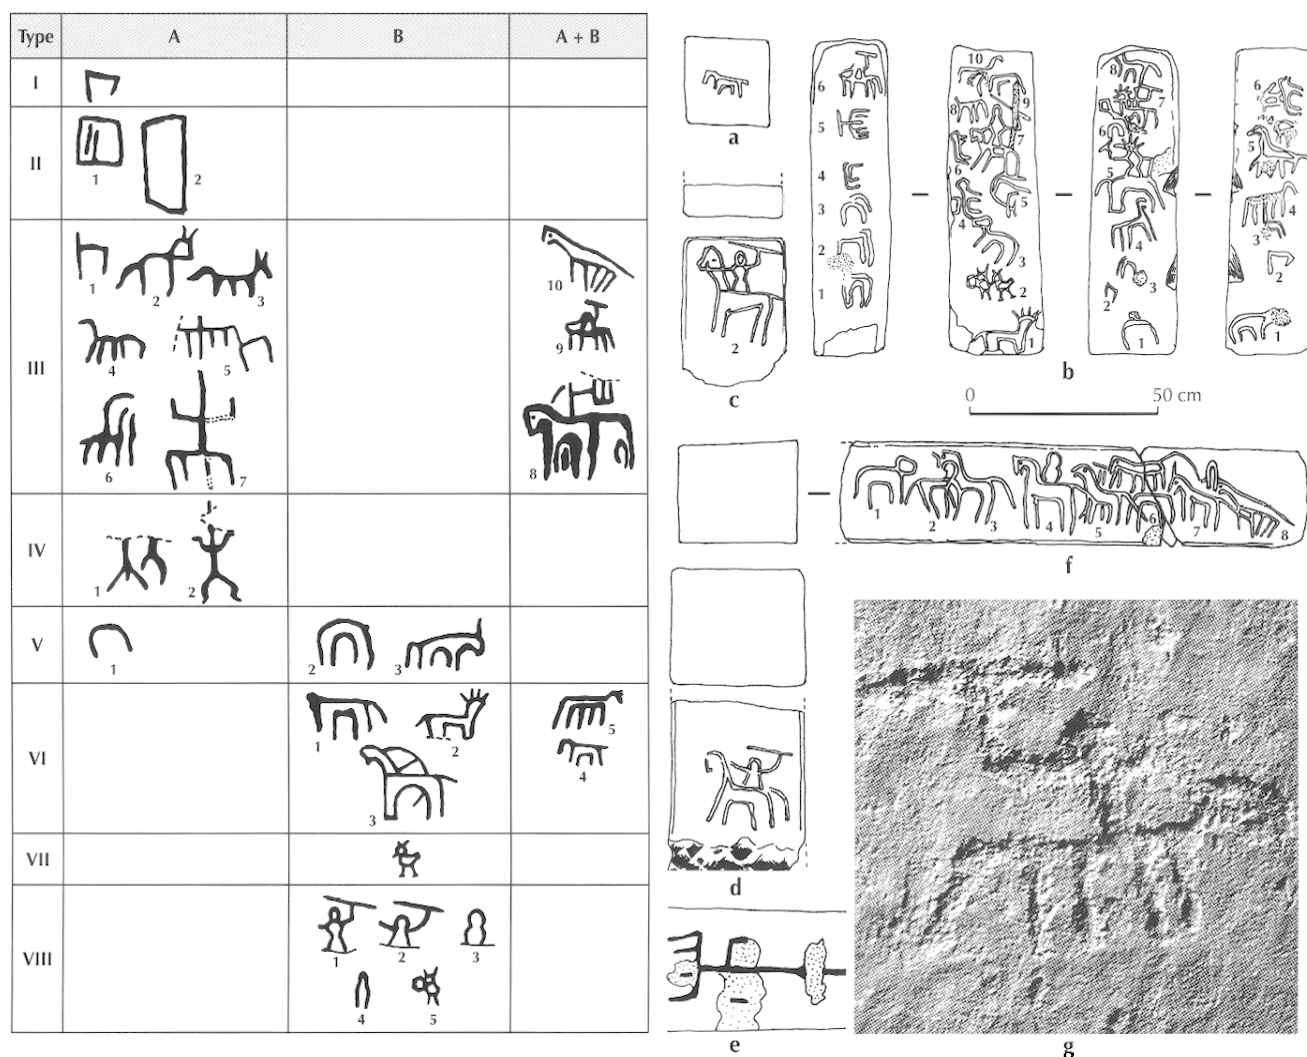 Type A B A + B
I
II
1 2
III
1 2 3
4 5
6 7
10
9
8
IV
1 2
V
1 2 3
VI
1 2
3
5
4
VII
VIII
1 2 3
4 5
a
2
c
6
5
4
3
2
1
10
9
8
7
6
5
4
3
2
1
8
7
6
5
4
3
2
1
6
5
4
3
2
1
b
0 50 cm
1 2 3 4 5 6 7 8
f
d
e
g